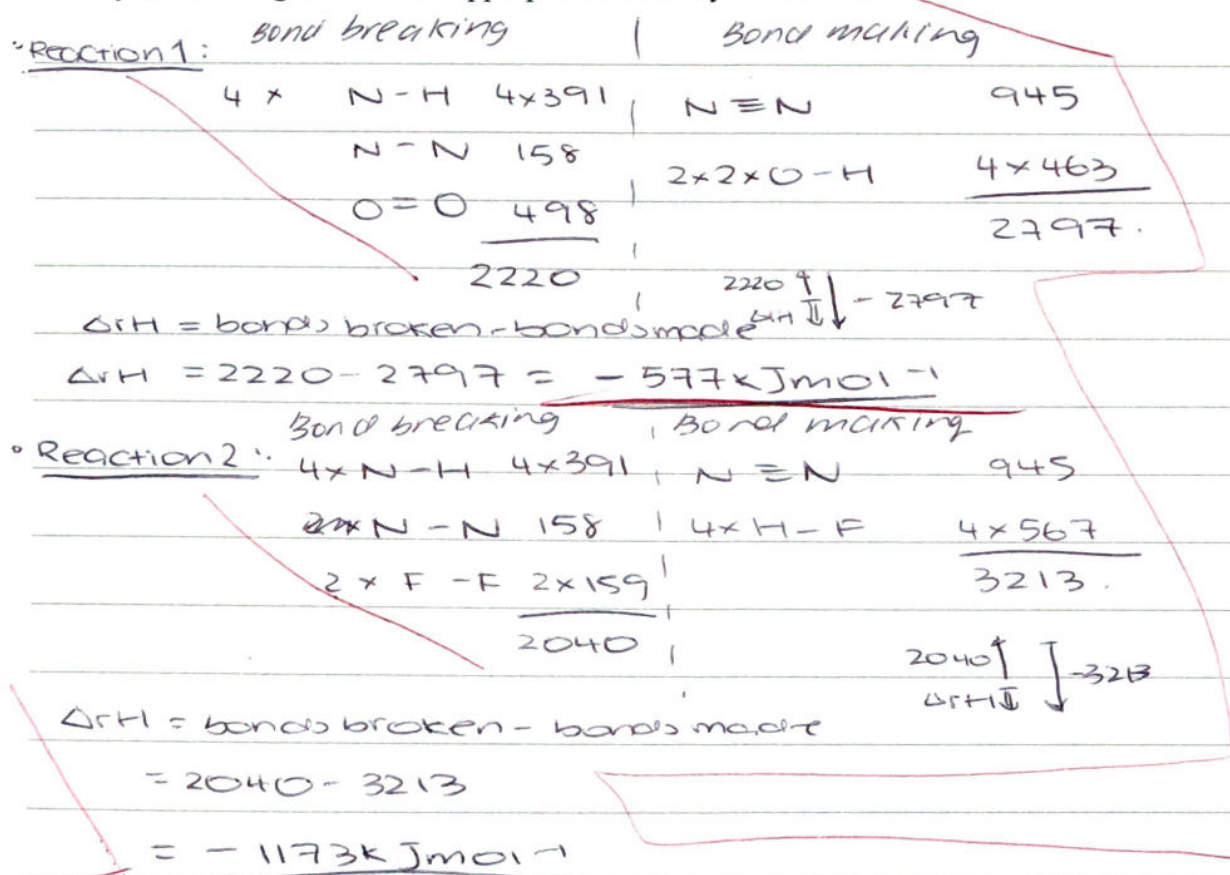 Bond breaking | Bond making
"Reaction 1:
4 × N-H 4×391 | N≡N 945
N-N 158 | 2×2×O-H 4×463
O=O 498 | 2797.
2220 | 2220 ↑ ↓ -2797
ΔrH = bonds broken - bonds made ΔrH ⇓
ΔrH = 2220 - 2797 = -577kJmol-1
Bond breaking | Bond making
• Reaction 2:. 4×N-H 4×391 | N≡N 945
N-N 158 | 4×H-F 4×567
2 × F-F 2×159 | 3213.
2040 | 2040↑ ↓-3213
ΔrH⇓
ΔrH = bonds broken - bonds made
= 2040 - 3213
= -1173kJmol-1